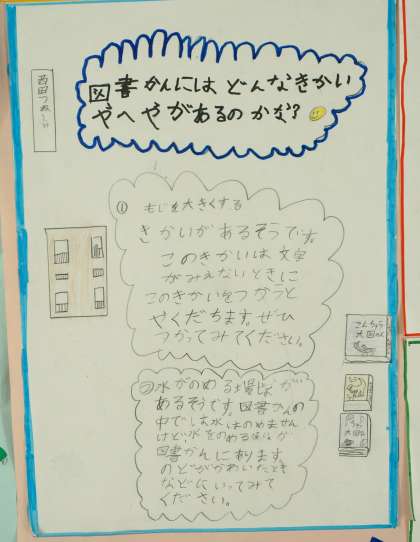 図書かんにはどんなきかい
やへやがあるのかな?
① もじを大きくする
きかいがあるそうです。
このきかいは文字
がみえないときに
このきかいをつかうと
やくだちます。ぜひ
つかってみてください。
②水がのめる場しょが
あるそうです。図書かんの
中では水はのめません
けど、水をのめる
図書かんに有ります。
のどがかわいたとき
などにいってみて
ください。
こんちゅう
大図かん